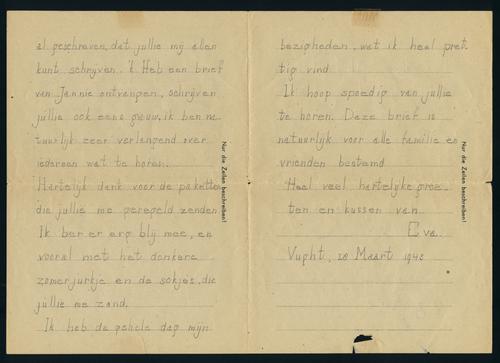 al geschreven, dat jullie mij allen
kunt schrijven. 'k Heb een brief
van Jannie ontvangen, schrijven
jullie ook eens gauw, ik ben na-
tuurlijk zeer verlangend over
iedereen wat te horen.
Hartelijk dank voor de pakketten
die jullie me geregeld zenden.
Ik ben er erg blij mee, en
vooral met het donkere
zomerjurkje en de sokjes, die
jullie me zond.
Ik heb de gehele dag mijn
Nur die Zeilen beschreiben!
bezigheden, wat ik heel pret
tig vind.
Ik hoop spoedig van jullie
te horen. Deze brief is
natuurlijk voor alle familie en
vrienden bestemd
Heel veel hartelijke groe-
ten en kussen van
Eva.
Vught, 28 Maart 1943
Nur die Zeilen beschreiben!